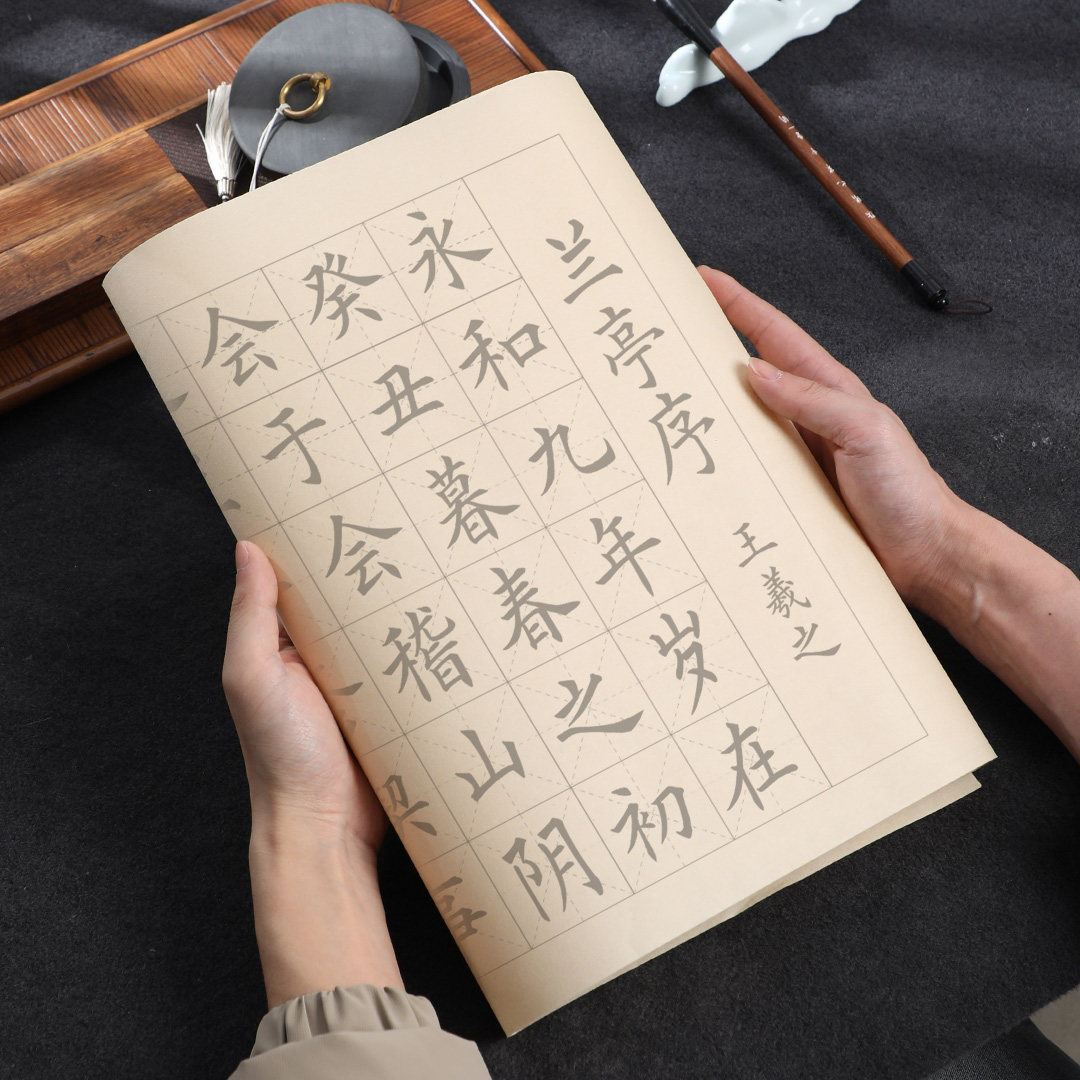 兰亭序 王羲之
永和九年岁在
癸丑暮春之初
会于会稽山阴